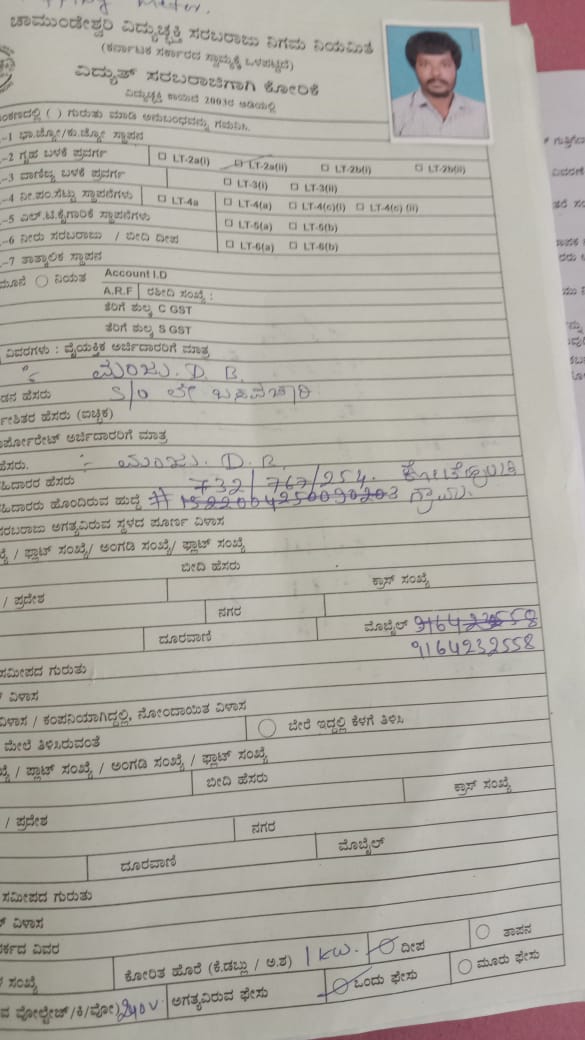 pping meter.
ಚಾಮುಂಡೇಶ್ವರಿ ವಿದ್ಯುಚ್ಛಕ್ತಿ ಸರಬರಾಜು ನಿಗಮ ನಿಯಮಿತ
(ಕರ್ನಾಟಕ ಸರ್ಕಾರದ ಸ್ವಾಮ್ಯಕ್ಕೆ ಒಳಪಟ್ಟಿದೆ)
ವಿದ್ಯುತ್ ಸರಬರಾಜಿಗಾಗಿ ಕೋರಿಕೆ
ವಿದ್ಯುಚ್ಛಕ್ತಿ ಕಾಯಿದೆ 2003ರ ಅಡಿಯಲ್ಲಿ
ಂಕಣದಲ್ಲಿ ( ) ಗುರುತು ಮಾಡಿ ಅನುಬಂಧವನ್ನು ಗಮನಿಸಿ.
-1 ಭಾ.ಜ್ಯೋ/ಕು.ಜ್ಯೋ ಸ್ಥಾಪನ
-2 ಗೃಹ ಬಳಕೆ ಪ್ರವರ್ಗ □ LT-2a(i) □ LT-2a(ii) □ LT-2b(i) □ LT-2b(ii)
-3 ವಾಣಿಜ್ಯ ಬಳಕೆ ಪ್ರವರ್ಗ □ LT-3(i) □ LT-3(ii)
-4 ನೀ.ಪಂ.ಸೆಟ್ಟು ಸ್ಥಾಪನೆಗಳು □ LT-4a □ LT-4(a) □ LT-4(c)(i) □ LT-4(c) (ii)
-5 ಎಲ್.ಟಿ.ಕೈಗಾರಿಕೆ ಸ್ಥಾಪನೆಗಳು □ LT-5(a) □ LT-5(b)
-6 ನೀರು ಸರಬರಾಜು / ಬೀದಿ ದೀಪ □ LT-6(a) □ LT-6(b)
-7 ತಾತ್ಕಾಲಿಕ ಸ್ಥಾಪನ
ಮೂನೆ ○ ನಿಯತ Account I.D
A.R.F ರಶೀದಿ ಸಂಖ್ಯೆ :
ತೆರಿಗೆ ಶುಲ್ಕ C GST
ತೆರಿಗೆ ಶುಲ್ಕ S GST
ವಿವರಗಳು : ವೈಯಕ್ತಿಕ ಅರ್ಜಿದಾರರಿಗೆ ಮಾತ್ರ
:- ಮಂಜು. D. B.
ಡನ ಹೆಸರು S/o ಲೇ ಬಸವಚಾರಿ
ರ್ದೇಶಿತರ ಹೆಸರು (ಐಚ್ಛಿಕ)
ರ್ಪೋರೇಟ್ ಅರ್ಜಿದಾರರಿಗೆ ಮಾತ್ರ
ಹೆಸರು. :- ಮಂಜು. D. B.
ಹಿದಾರರ ಹೆಸರು 732/767/254.
ಹಿದಾರರು ಹೊಂದಿರುವ ಹುದ್ದೆ # 1522004250090203 ಗ್ರಾಮ.
ಸರಬರಾಜು ಅಗತ್ಯವಿರುವ ಸ್ಥಳದ ಪೂರ್ಣ ವಿಳಾಸ
ಖ್ಯೆ / ಪ್ಲಾಟ್ ಸಂಖ್ಯೆ/ ಅಂಗಡಿ ಸಂಖ್ಯೆ/ ಫ್ಲಾಟ್ ಸಂಖ್ಯೆ
ಬೀದಿ ಹೆಸರು
ಕ್ರಾಸ್ ಸಂಖ್ಯೆ
/ ಪ್ರದೇಶ
ನಗರ
ದೂರವಾಣಿ ಮೊಬೈಲ್ 9164232558
9164232558
ಸಮೀಪದ ಗುರುತು
ವಿಳಾಸ
ವಿಳಾಸ / ಕಂಪನಿಯಾಗಿದ್ದಲ್ಲಿ, ನೋಂದಾಯಿತ ವಿಳಾಸ
ಮೇಲೆ ತಿಳಿಸಿರುವಂತೆ ○ ಬೇರೆ ಇದ್ದಲ್ಲಿ ಕೆಳಗೆ ತಿಳಿಸಿ
ಖ್ಯೆ / ಪ್ಲಾಟ್ ಸಂಖ್ಯೆ / ಅಂಗಡಿ ಸಂಖ್ಯೆ / ಫ್ಲಾಟ್ ಸಂಖ್ಯೆ
ಬೀದಿ ಹೆಸರು
ಕ್ರಾಸ್ ಸಂಖ್ಯೆ
/ ಪ್ರದೇಶ
ನಗರ
ದೂರವಾಣಿ ಮೊಬೈಲ್
ಸಮೀಪದ ಗುರುತು
ವಿಳಾಸ
ರ್ಕದ ವಿವರ
ಸಂಖ್ಯೆ ಕೋರಿತ ಹೊರೆ (ಕೆ.ಡಬ್ಲು / ಅ.ಶ) 1 KW. ○ ದೀಪ ○ ತಾಪನ
ವ ವೋಲ್ಟೇಜ್/ಕಿ/ವೋ) 240 V. ಅಗತ್ಯವಿರುವ ಫೇಸು ○ ಒಂದು ಫೇಸು ○ ಮೂರು ಫೇಸು